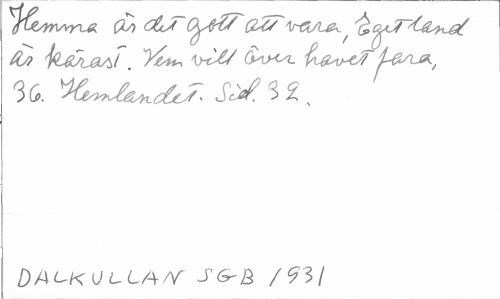 Hemma är det gott att vara, Eget land
är kärast. Vem vill över havet fara,
36. Hemlandet. Sid. 32.
DALKULLAN SGB 1931